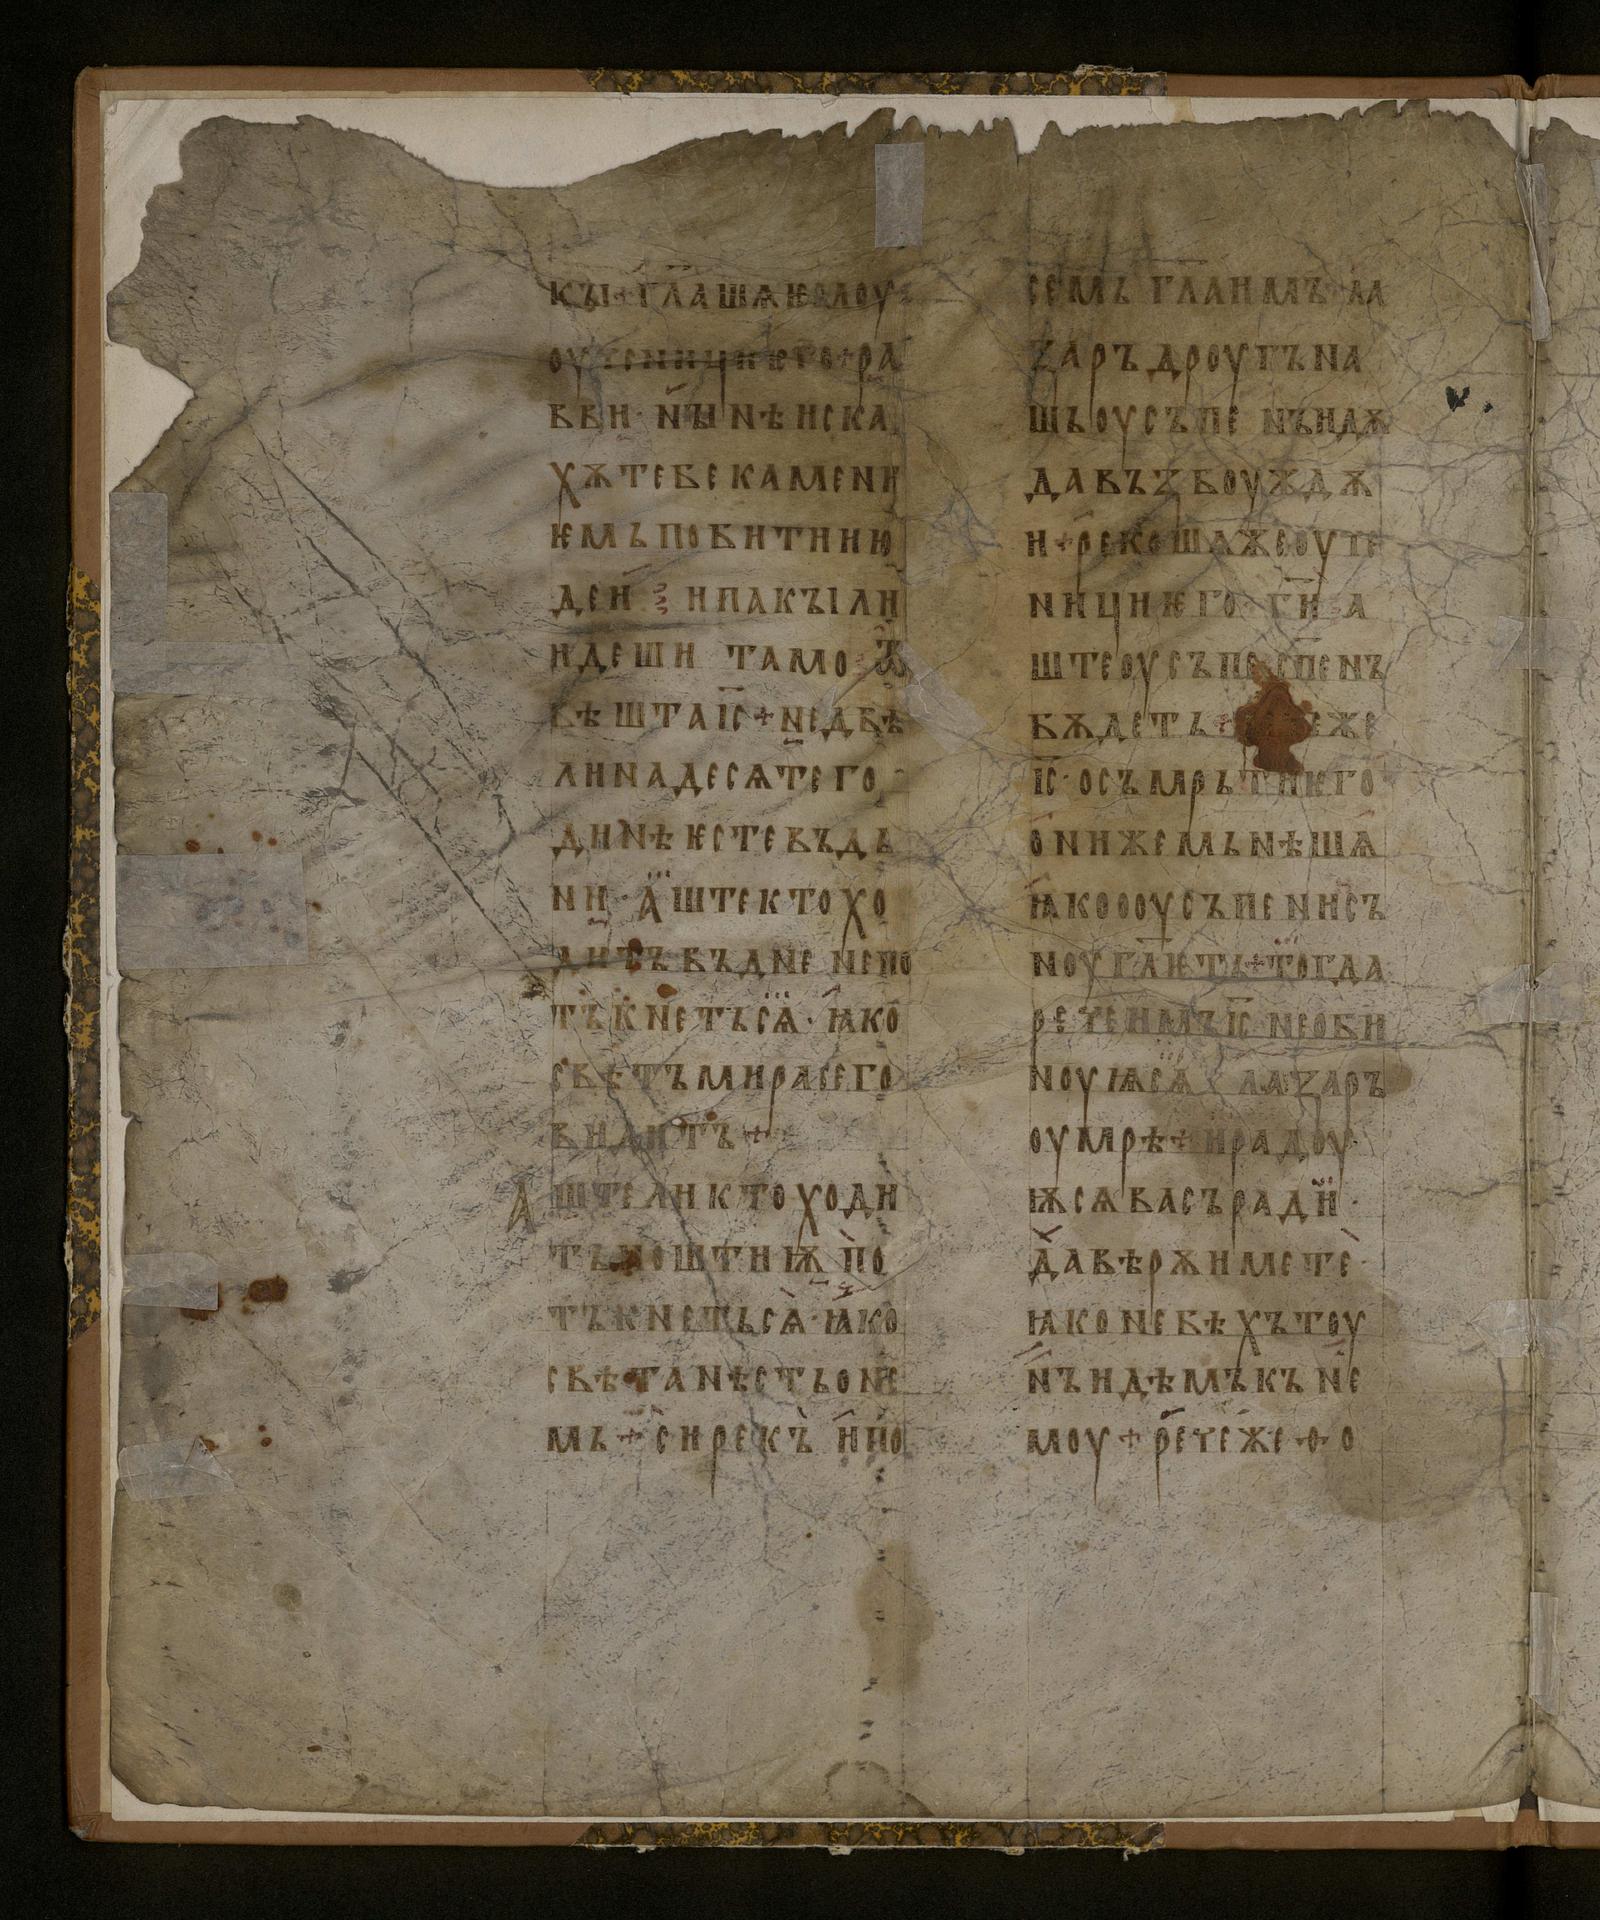 кꙑ · гл҃ашѧ ѥмоу
оученици ѥго + ра
вви · нꙑнѣ иска
хѫ тебе камени
ѥмь побити ию
деи ⁘ и пакꙑ ли
идеши тамо · ѿ
вѣшта іс҃ + не дъвѣ
ли на десѧте го
динѣ ѥсте въ дь
ни · аште кто хо
дитъ въ дне не по
тъкнетъ сѧ · ꙗко
свѣтъ мира сего
видитъ +
Аште ли кто ходи
тъ ноштиѭ по
тъкнеть сѧ · ꙗко
свѣта нѣсть о нѥ
мь + си рекъ и по
семь гл҃а имъ ла
ꙁаръ дроугъ на
шь оусъпе нъ идѫ
да въꙁбоуждѫ
и + рекошѧ же оуче
ници ѥго · г҃и а
ште оусъпе сп҃енъ
бѫдетъ + же
іс҃ · о съмрьти ѥго
они же мьнѣшѧ
ꙗко о оусъпении съ
ноу гл҃ѥть + тогда
рече имъ іс҃ не оби
ноуѩ сѧ лаꙁаръ
оумрѣ + и радоу
ѭ сѧ васъ ради ·
да вѣрѫ имете ·
ꙗко не бѣхъ тоу
нъ идѣмъ къ не
моу + рече же ѳо